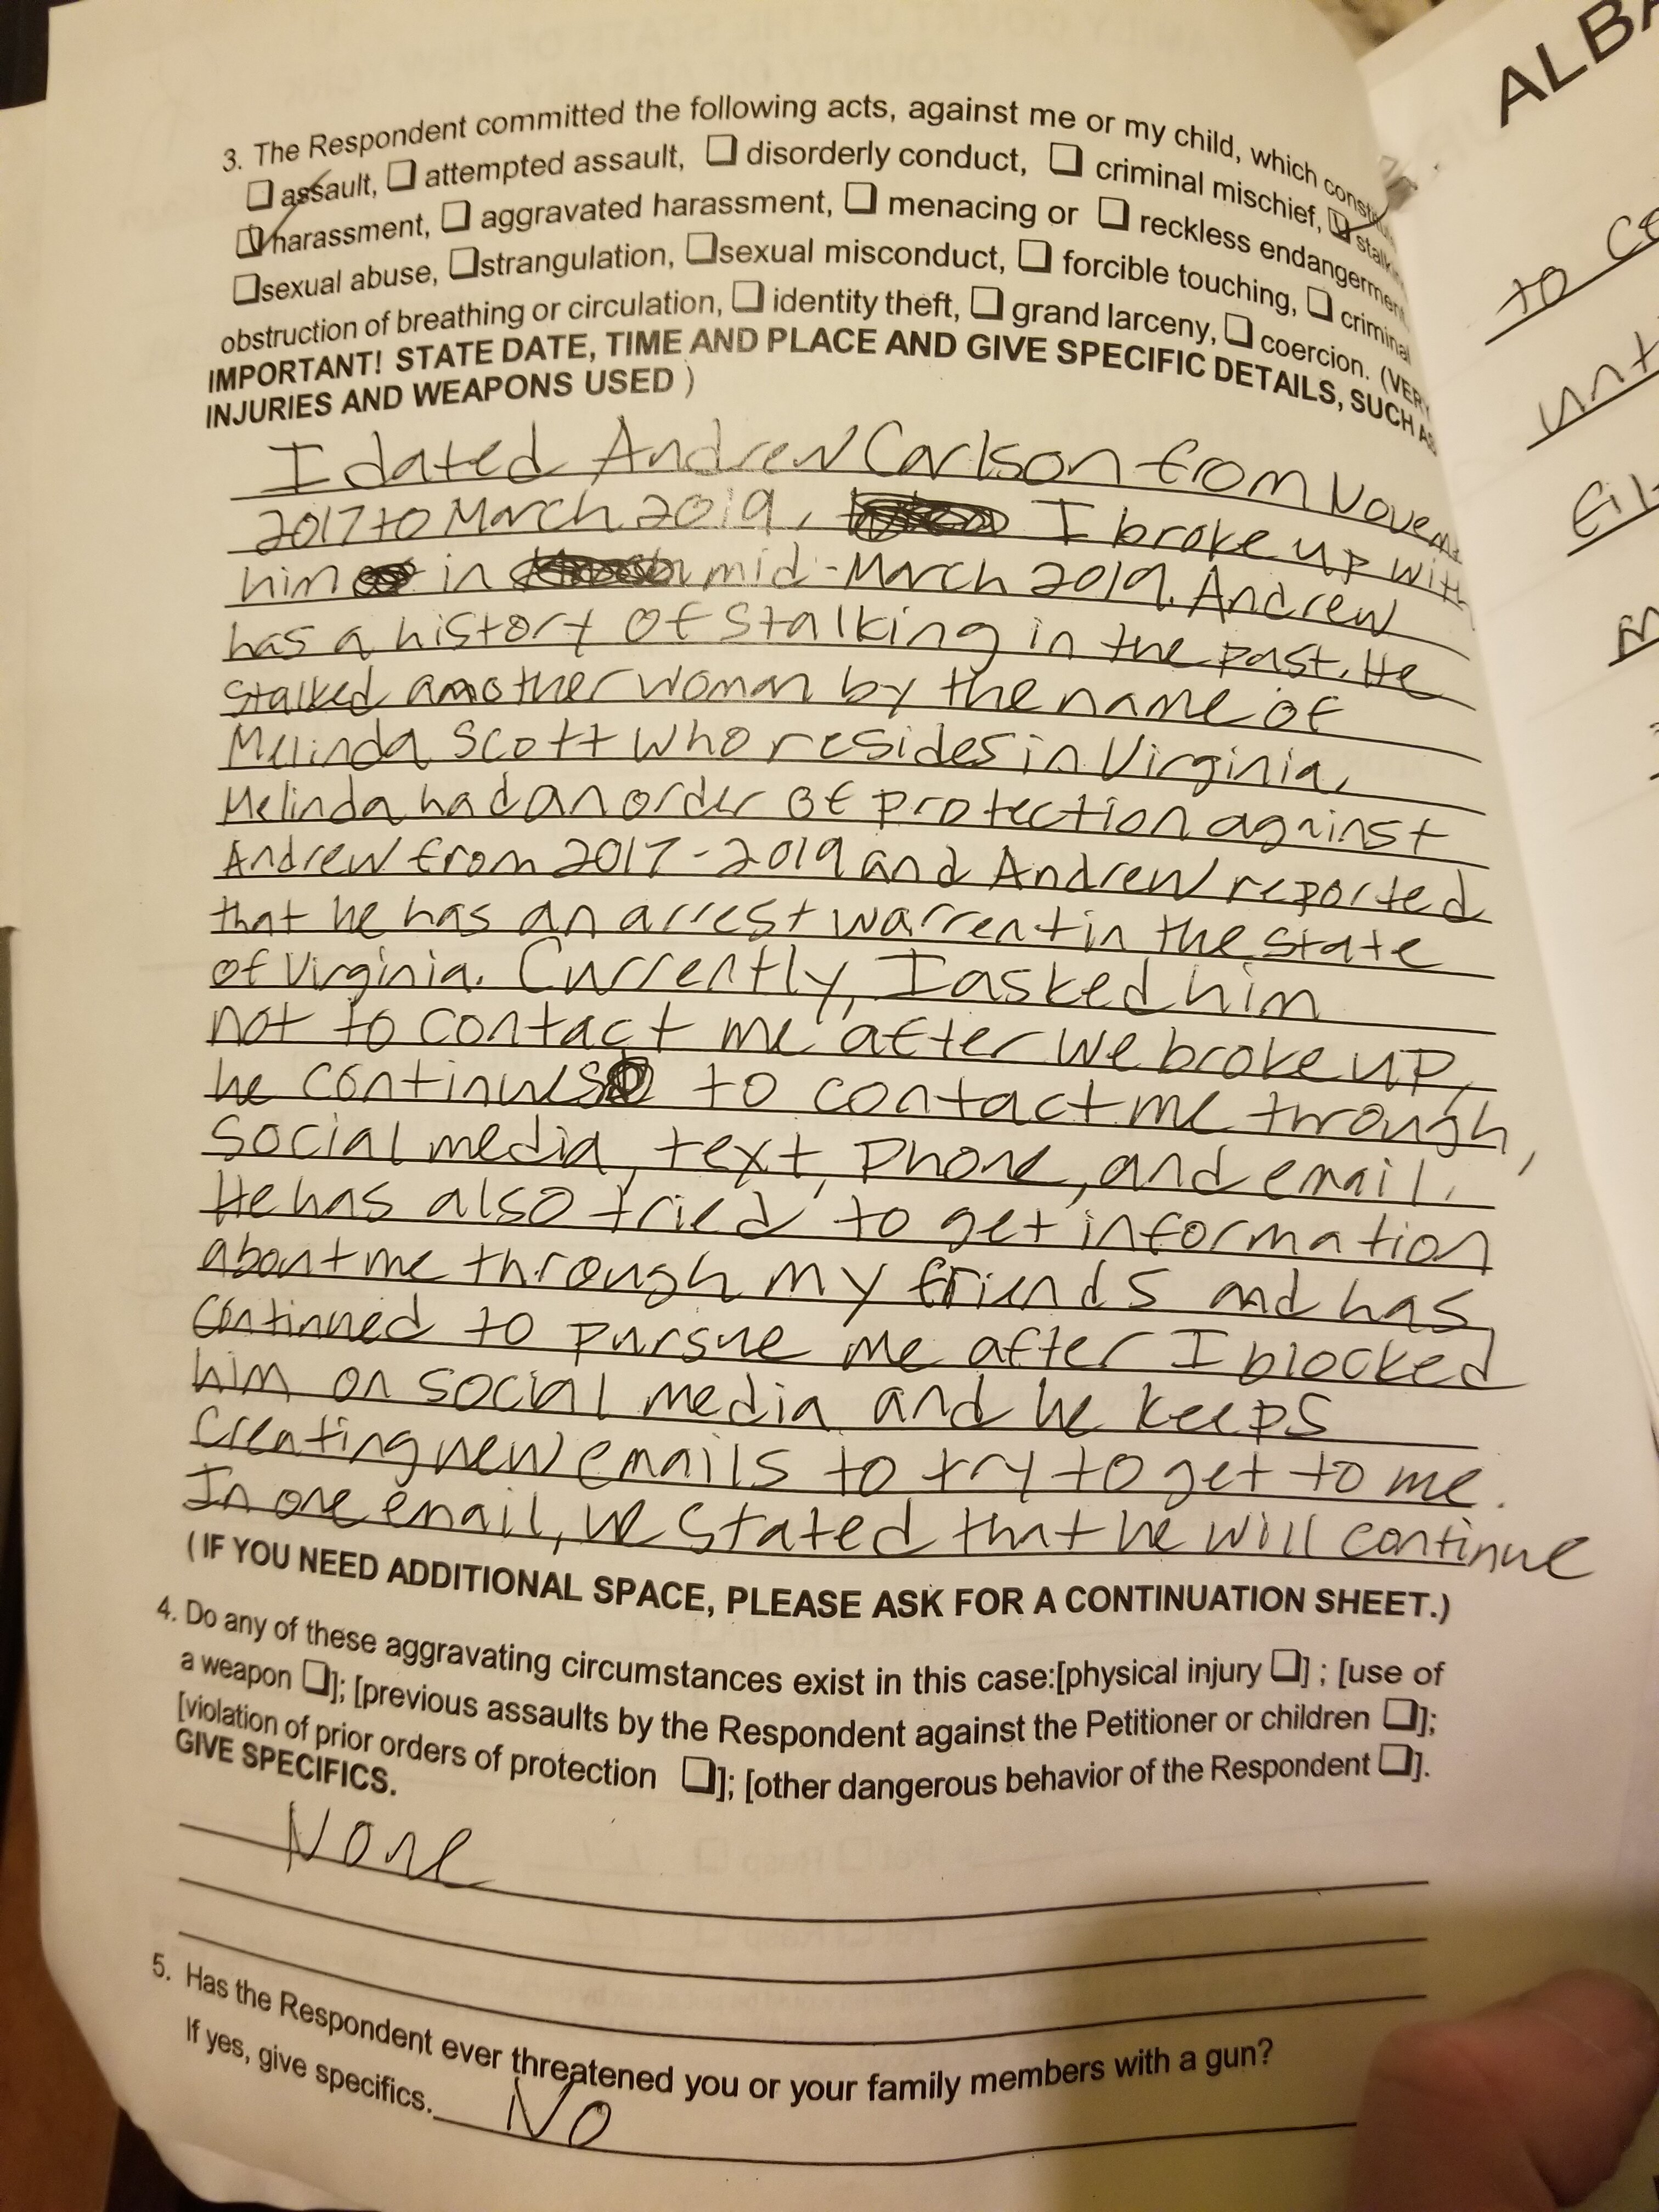 3. The Respondent committed the following acts, against me or my child, which
☐ assault, ☐ attempted assault, ☐ disorderly conduct, ☐ criminal mischief, ☑
☑ harassment, ☐ aggravated harassment, ☐ menacing or ☐ reckless endangerment
☐ sexual abuse, ☐ strangulation, ☐ sexual misconduct, ☐ forcible touching, ☐ criminal
obstruction of breathing or circulation, ☐ identity theft, ☐ grand larceny, ☐ coercion. (VERY
IMPORTANT! STATE DATE, TIME AND PLACE AND GIVE SPECIFIC DETAILS, SUCH AS
INJURIES AND WEAPONS USED )
I dated Andrew Carlson from Novem
2017 to March 2019. I broke up with
him in mid-March 2019. Andrew
has a history of stalking in the past. He
stalked another woman by the name of
Melinda Scott who resides in Virginia.
Melinda had an order of protection against
Andrew from 2017-2019 and Andrew reported
that he has an arrest warrent in the state
of Virginia. Currently, I asked him
not to contact me after we broke up,
he continues to contact me through,
social media, text, phone, and email.
He has also tried to get information
about me through my friends and has
continued to pursue me after I blocked
him on social media and he keeps
creating new emails to try to get to me.
In one email, he stated that he will continue
(IF YOU NEED ADDITIONAL SPACE, PLEASE ASK FOR A CONTINUATION SHEET.)
4. Do any of these aggravating circumstances exist in this case:[physical injury ☐] ; [use of
a weapon ☐]; [previous assaults by the Respondent against the Petitioner or children ☐];
[violation of prior orders of protection ☐]; [other dangerous behavior of the Respondent ☐].
GIVE SPECIFICS.
None
5. Has the Respondent ever threatened you or your family members with a gun?
If yes, give specifics. No
ALBA
to co
unt